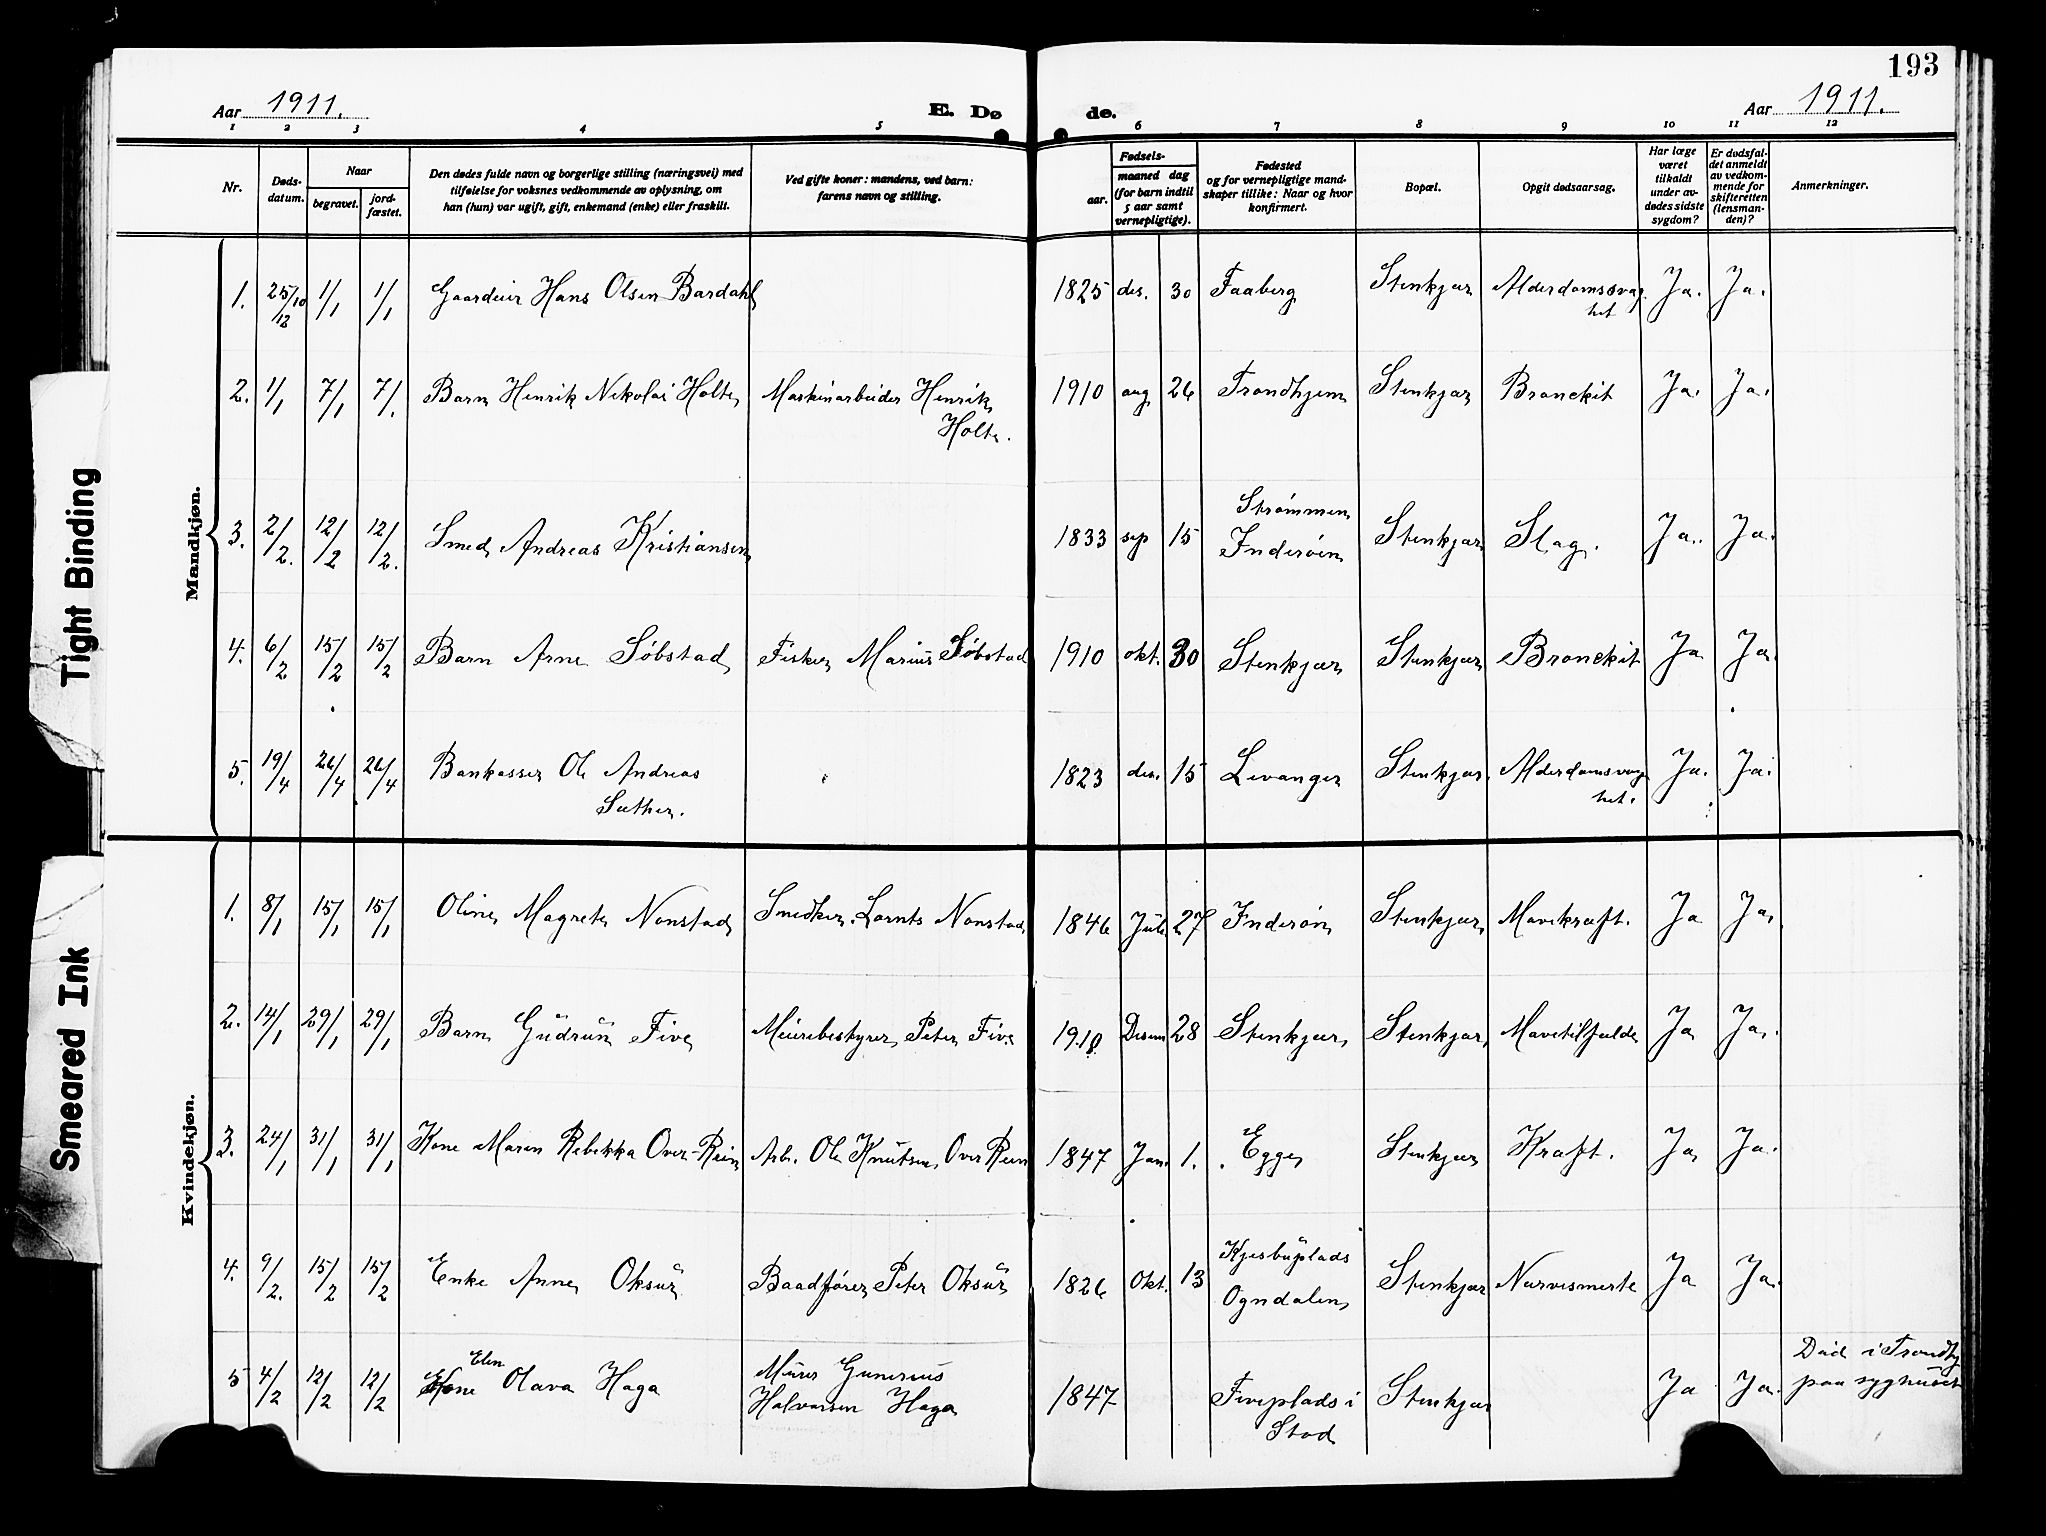 193
Aar 1911. E. Dø de. Aar 1911.
1 2 3 4 5 6 7 8 9 10 11 12
Nr.
Døds-
datum.
Naar
begravet.
jord-
fæstet.
Den dødes fulde navn og borgerlige stilling (næringsvei) med
tilføielse for voksnes vedkommende av oplysning, om
han (hun) var ugift, gift, enkemand (enke) eller fraskilt.
Ved gifte koner: mandens, ved barn:
farens navn og stilling.
Fødsels-
aar.
maaned dag
(for barn indtil
5 aar samt
vernepligtige).
Fødested
og for vernepligtige mand-
skaper tillike: Naar og hvor
konfirmert.
Bopæl.
Opgit dødsaarsag.
Har læge
været
tilkaldt
under av-
dødes sidste
sygdom?
Er dødsfal-
det anmeldt
av vedkom-
mende for
skifteretten
(lensman-
den)?
Anmerkninger.
Mandkjøn.
1. 25/10 12 1/1 1/1 Gaardeier Hans Olsen Bardahl 1825 des. 30 Faaberg Stenkjær Alderdomssvag
het Ja. Ja.
2. 1/1 7/1 7/1 Barn Henrik Nikolai Holte Maskinarbeider Henrik
Holte. 1910 aug 26 Trondhjem Stenkjær Bronckit Ja. Ja.
3. 2/2. 12/2 12/2. Smed Andreas Kristiansen 1833 sep 15 Strømmen
Inderøen Stenkjær Slag. Ja.. Ja.
4. 6/2 15/2 15/2 Barn Arne Søbstad Fisker Marius Søbstad 1910 okt. 30 Stenkjær Stenkjær Bronckit Ja Ja.
5. 19/4 26/4 26/4 Bankasser Ole Andreas
Sæther. 1823 des. 15 Levanger Stenkjær. Alderdomsvag
het. Ja. Ja.
Kvindekjøn.
1. 8/1 15/1 15/1 Oline Magrete Nonstad Snedker Lornts Nonstad 1846 Juli 27 Inderøn Stenkjær Mavekræft. Ja Ja.
2. 14/1 29/1 29/1 Barn Gudrun Five Meieribestyrer Peter Five 1910 Desem 28 Stenkjær Stenkjær Mavetilfælde Ja Ja.
3. 24/1 31/1 31/1 Kone Maren Rebekka Over-Rein Arb. Ole Knutsen Over Rein 1847 Jan. 1. Egge Stenkjær Kræft. Ja Ja.
4. 9/2. 15/2 15/2 Enke Anne Oksur Baadfører Peter Oksur 1826 Okt. 13 Kjesbuplads
Ogndalen Stenkjær Nervesmerte Ja Ja.
5 4/2 12/2 12/2 Elen
Kone Olava Haga Murer Gunerius
Halvorsen Haga 1847 Fiveplads i
Stod Stenkjær Ja Ja. Død i Trondhj
paa syghuset
Tight Binding
Smeared Ink